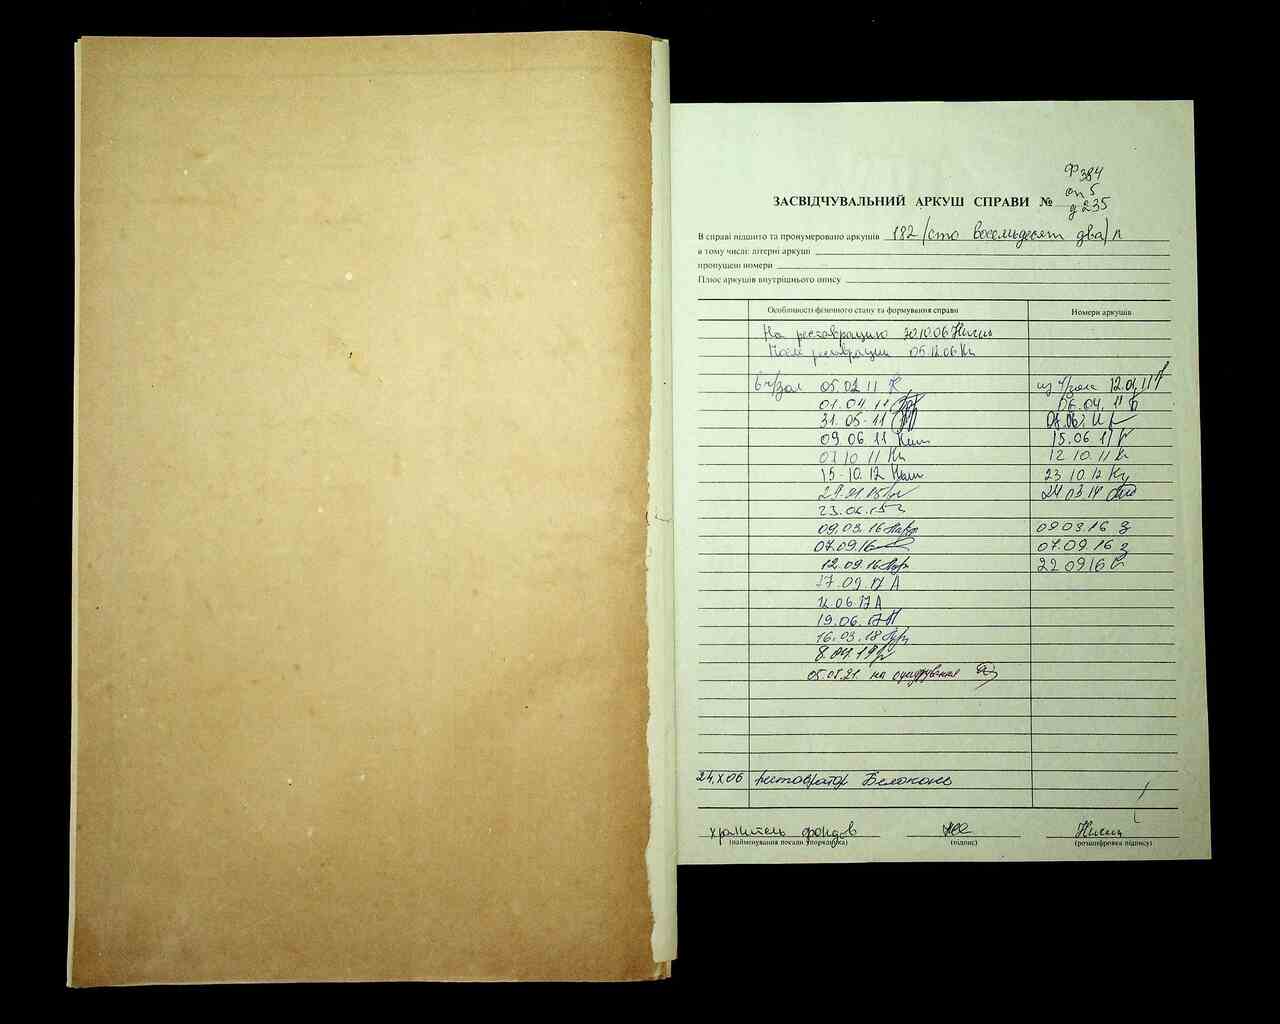 Ф 384
оп 5
ЗАСВІДЧУВАЛЬНИЙ АРКУШ СПРАВИ № д 235
В справі підшито та пронумеровано аркушів 182 /сто восемьдесят два/ л
в тому числі: літерні аркуші
пропущені номери
Плюс аркушів внутрішнього опису
Особливості фізичного стану та формування справи Номери аркушів
На реставрацию 30.10.06
После реставрации 05.12.06
в ч/зал 05.01 11 из ч/зала 12.01.11
01.04 11 06.04. 11
31.05-11
09.06 11 15.06 11
07 10 11 12 10.11
15-10.12 23 10.12
24 03 14
23.06.15
09.03.16 09 03.16
07.09.16 07.09 16
12.09.16 22 09 16
12.06 17 А
19.06.17
16.03.18
05.05.21. на оцифрування
24.X.06 реставратор Белоконь
хранитель фондов
(найменування посади упорядника) (підпис) (розшифровка підпису)